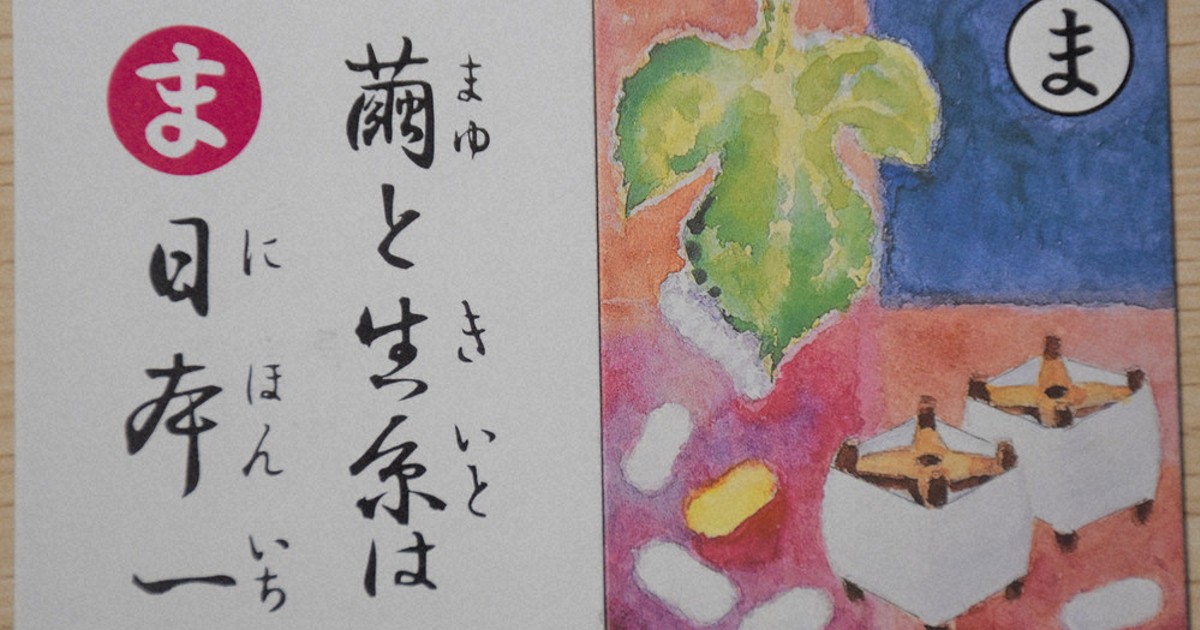 ま
繭と生糸は
まゆ
きいと
日本一
にほんいち
ま